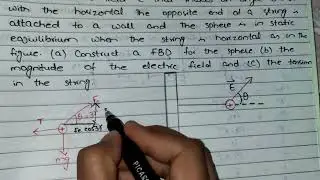 with the horizontal the opposite end of a string is
attached to a wall and the sphere is in static
equilibrium when the string is horizontal as in the
figure. (a) Construct a FBD for the sphere (b) the
magnitude of the electric field and (c) the tension
in the string.
E
θ
T
mg
PICASSO